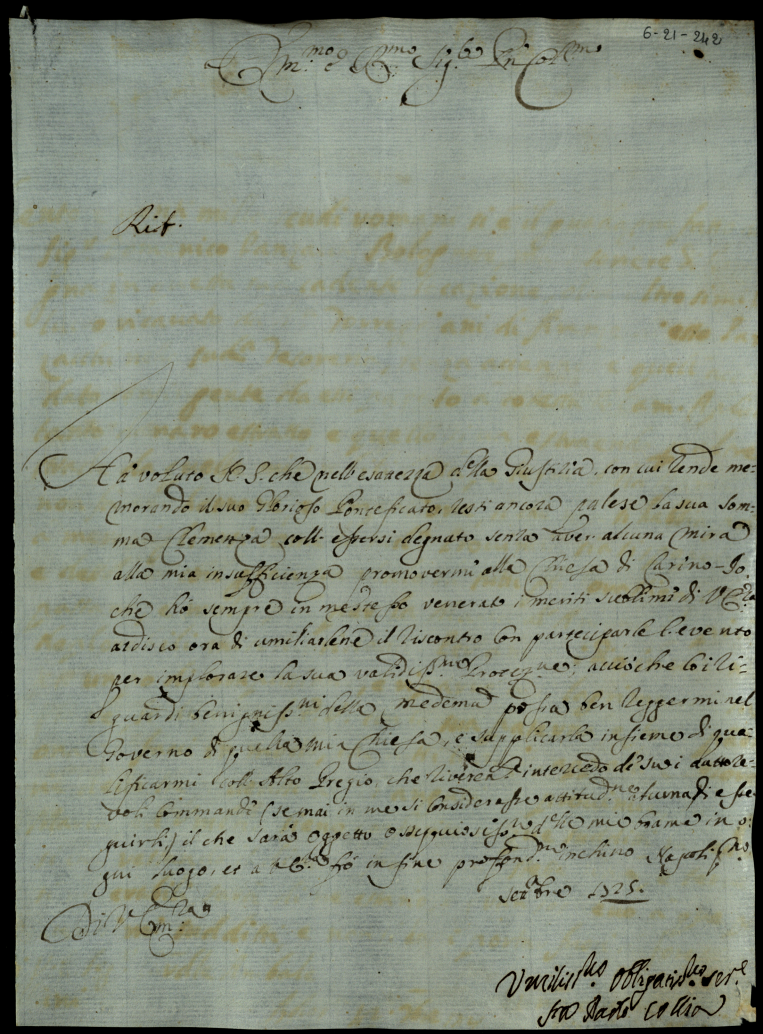 6-21-242
Em.mo e R.mo Sig.re Pn Col.mo
Rist.
Hà voluto N. S. che nell'esatezza della Giustitia, con cui rende me=
morando il suo Glorioso Pontificato, resti ancora palese la sua som=
ma Clemenza coll'essersi degnato senza aver alcuna mira
alla mia insufficienza promovermi alla Chiesa di Carino-Io,
che hò sempre in me stesso venerato i meriti sublimi di V. Em.za
ardisco ora di umiliarlene il riscontro con parteciparle l'evento
per implorare la sua validiss.ma Protez.ne; acciò che co i ri=
guardi benigniss.mi della medema possa ben reggermi nel
Governo di quella mia Chiesa, e supplicarla insieme di qua=
lificarmi coll'Alto Pregio, che riverent.e intercedo de' suoi autore=
voli Commandi (se mai in me si considerasse attitud.ne
guirli) il che sarà oggetto ossequiosiss.mo delle mie brame in o=
gni luogo, et a V. Em.za fò in fine profond.mo inchino Napoli p.mo
Settbre 1725.
Di V. Em.za
Umiliss.mo Obligatiss.mo Ser.e
Paolo Collia